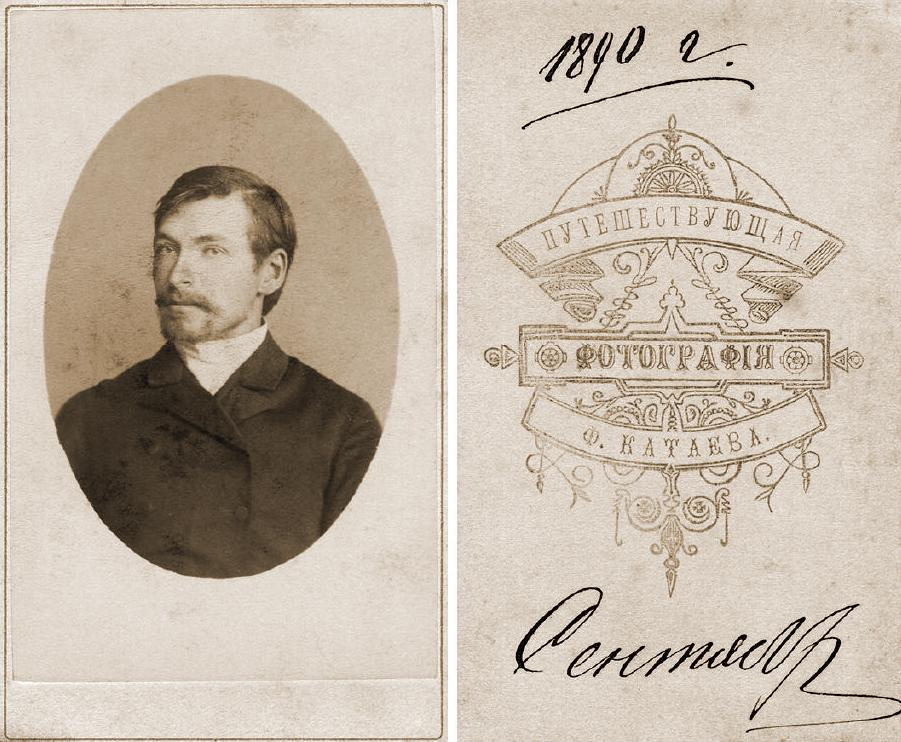 1890 г.
ПУТЕШЕСТВУЮЩАЯ
ФОТОГРАФІЯ
Ф. КАТАЕВА.
Сентябр